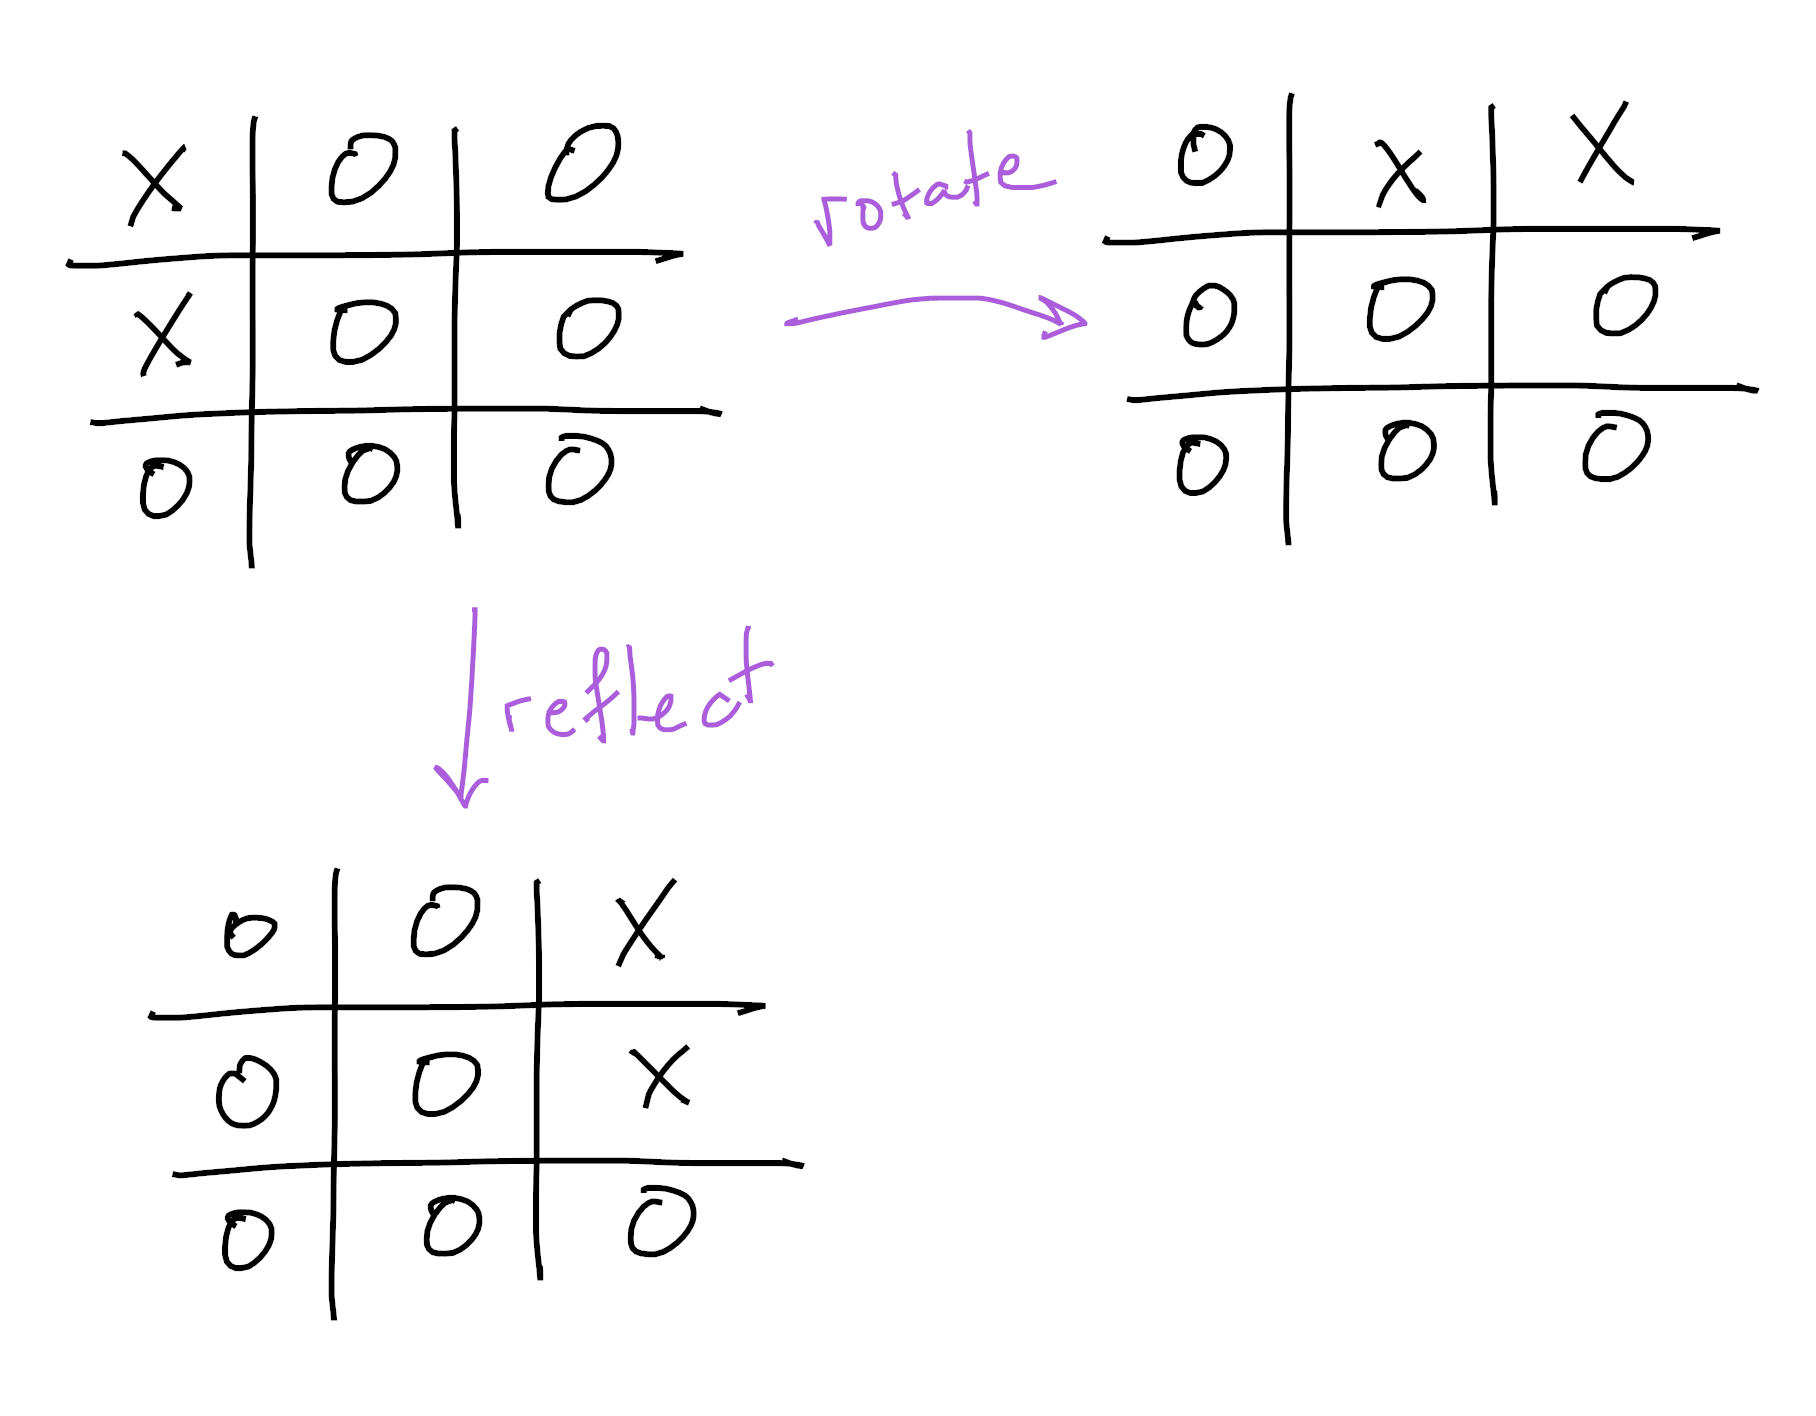 X O O
X O O
O O O
rotate
O X X
O O O
O O O
reflect
O O X
O O X
O O O